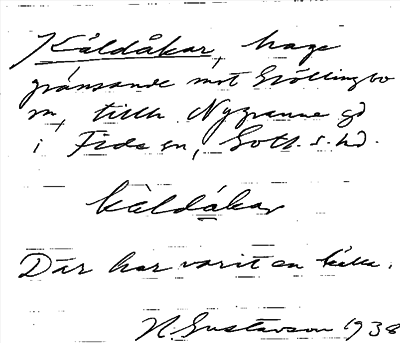 Kåldåkar, hage
gränsande mot Stöttingbo
m, tillh. Nygranne gd
i Fide sn, Gotl. s. hd.
kàldákar
Där har varit en källa.
N Gustavson 1938